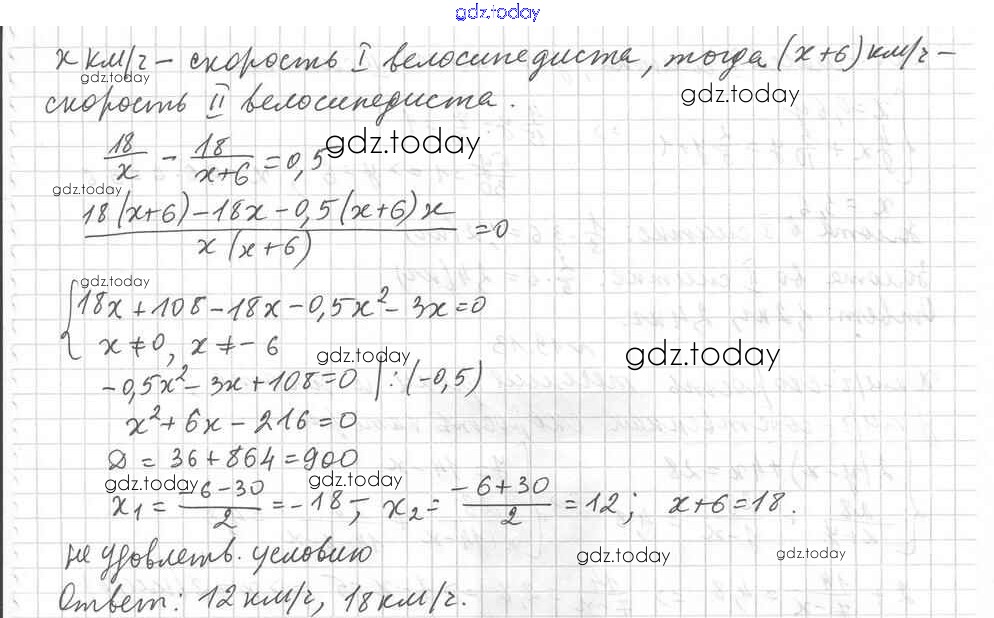 gdz.today
x км/ч – скорость I велосипедиста, тогда (x+6) км/ч –
gdz.today
gdz.today
скорость II велосипедиста.
18/x - 18/(x+6) = 0,5
gdz.today
gdz.today
(18(x+6)-18x-0,5(x+6)x)/(x(x+6)) = 0
gdz.today
{ 18x+108-18x-0,5x²-3x=0
x≠0, x≠-6
gdz.today
gdz.today
-0,5x²-3x+108=0 | :(-0,5)
x²+6x-216=0
D = 36+864=900
gdz.today
gdz.today
x₁ = (-6-30)/2 = -18 -; x₂ = (-6+30)/2 = 12; x+6=18.
не удовлетв. условию
gdz.today
gdz.today
Ответ: 12км/ч, 18км/ч.